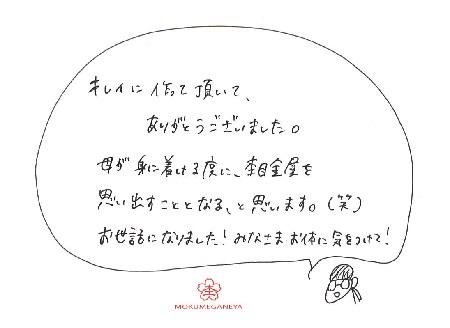 キレイに作って頂いて、
ありがとうございました。
母が身に着ける度に、杢目金屋を
思い出すこととなる、と思います。(笑)
お世話になりました!みなさまお体に気をつけて!
MOKUMEGANEYA